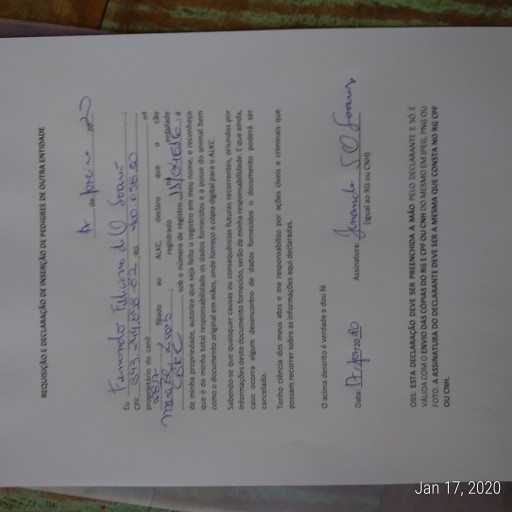 REQUISIÇÃO E DECLARAÇÃO DE INSERÇÃO DE PEDIGREE DE OUTRA ENTIDADE
17 de janeiro 2020
Eu Fernando
CPF , RG , nº
proprietário do canil
filiado ao ALKC, declaro que o cão
registrado na entidade
CBKC sob o número de registro , é
de minha propriedade, autorizo que seja feito o registro em meu nome, e reconheço
que é de minha total responsabilidade os dados fornecidos e a posse do animal bem
como o documento original em mãos, onde forneço a cópia digital para o ALKC.
Sabendo-se que quaisquer causas ou consequências futuras recorrentes, oriundos por
informações deste documento fornecido, serão de minha responsabilidade. E que ainda,
caso ocorra algum desencontro de dados fornecidos o documento poderá ser
cancelado.
Tenho ciência dos meus atos e me responsabilizo por ações cíveis e criminais que
possam recorrer sobre as informações aqui declaradas.
O acima descrito é verdade e dou fé
Data: 17, jan 20 20 Assinatura: Fernando
(igual ao RG ou CNH)
OBS: ESTA DECLARAÇÃO DEVE SER PREENCHIDA A MÃO PELO DECLARANTE E SÓ É
VÁLIDA COM O ENVIO DAS CÓPIAS DO RG E CPF OU CNH DO MESMO EM JPEG, PNG OU
FOTO. A ASSINATURA DO DECLARANTE DEVE SER A MESMA QUE CONSTA NO RG CPF
OU CNH.
Jan 17, 2020